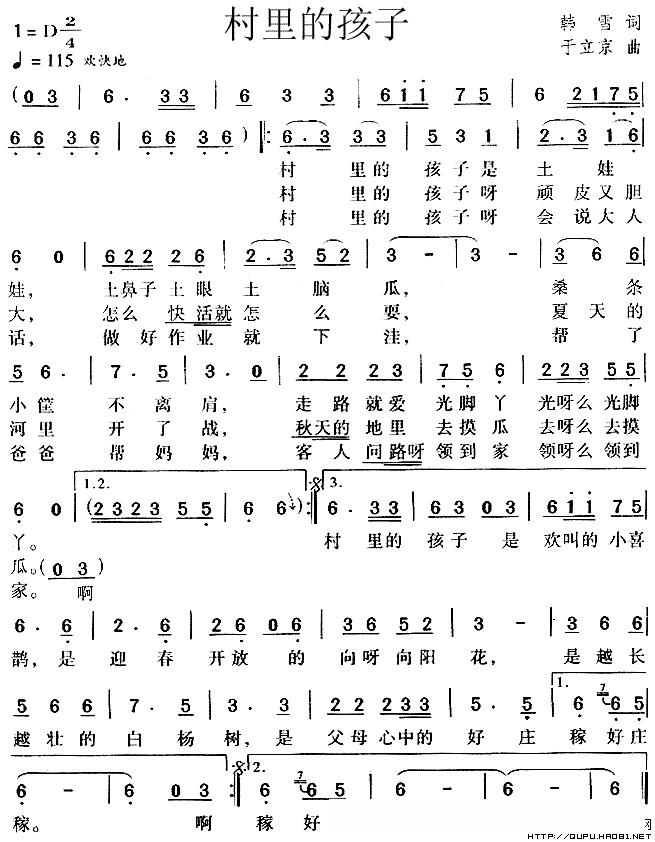 村里的孩子
1=D 2/4
韩 雪 词
♩=115 欢快地
于立京 曲
( 0 3 | 6 · 3 3 | 6 3 3 | 6 1 1 7 5 | 6 2 1 7 5 |
6 6 3 6 | 6 6 3 6 | 6 6 3 6 ) ‖: 6 · 3 3 3 | 5 3 1 | 2 · 3 1 6 |
村 里的 孩 子是 土 娃
村 里的 孩 子呀 顽 皮又胆
村 里的 孩 子呀 会 说大人
6 0 | 6 2 2 2 6 | 2 · 3 5 2 | 3 - | 3 - | 3 6 6 |
娃, 土鼻子土眼土 脑 瓜, 桑 条
大, 怎么 快活就怎 么 耍, 夏 天的
话, 做好作业就 下 洼, 帮 了
5 6 · | 7 · 5 | 3 · 0 | 2 2 2 3 | 7 5 6 | 2 2 3 5 5 |
小筐 不离肩, 走路就爱 光脚丫 光呀么光脚
河里 开了战, 秋天的地里 去摸瓜 去呀么去摸
爸爸 帮妈妈, 客人问路呀 领到家 领呀么领到
6 0 | 1.2. ( 2 3 2 3 5 5 | 6 6 ) :‖ 3. 6 · 3 3 | 6 3 0 3 | 6 1 1 7 5 |
丫。 村 里的 孩子 是 欢叫的小喜
瓜。( 0 3 )
家。 啊
6 · 6 | 2 · 6 | 2 6 0 6 | 3 6 5 2 | 3 - | 3 6 6 |
鹊,是 迎 春 开放 的 向呀向阳 花, 是越长
5 6 6 | 7 · 5 | 3 · 3 | 2 2 2 3 3 | 5 · 5 | 1. 6 6 5 |
越壮的 白杨树,是 父母心中的 好 庄 稼好庄
6 - | 6 - | 6 0 3 :‖ 2. 6 6 5 | 6 - | 6 - | 6 - |
稼。 啊 稼 好
网
HTTP://QUPU.HAO81.NET